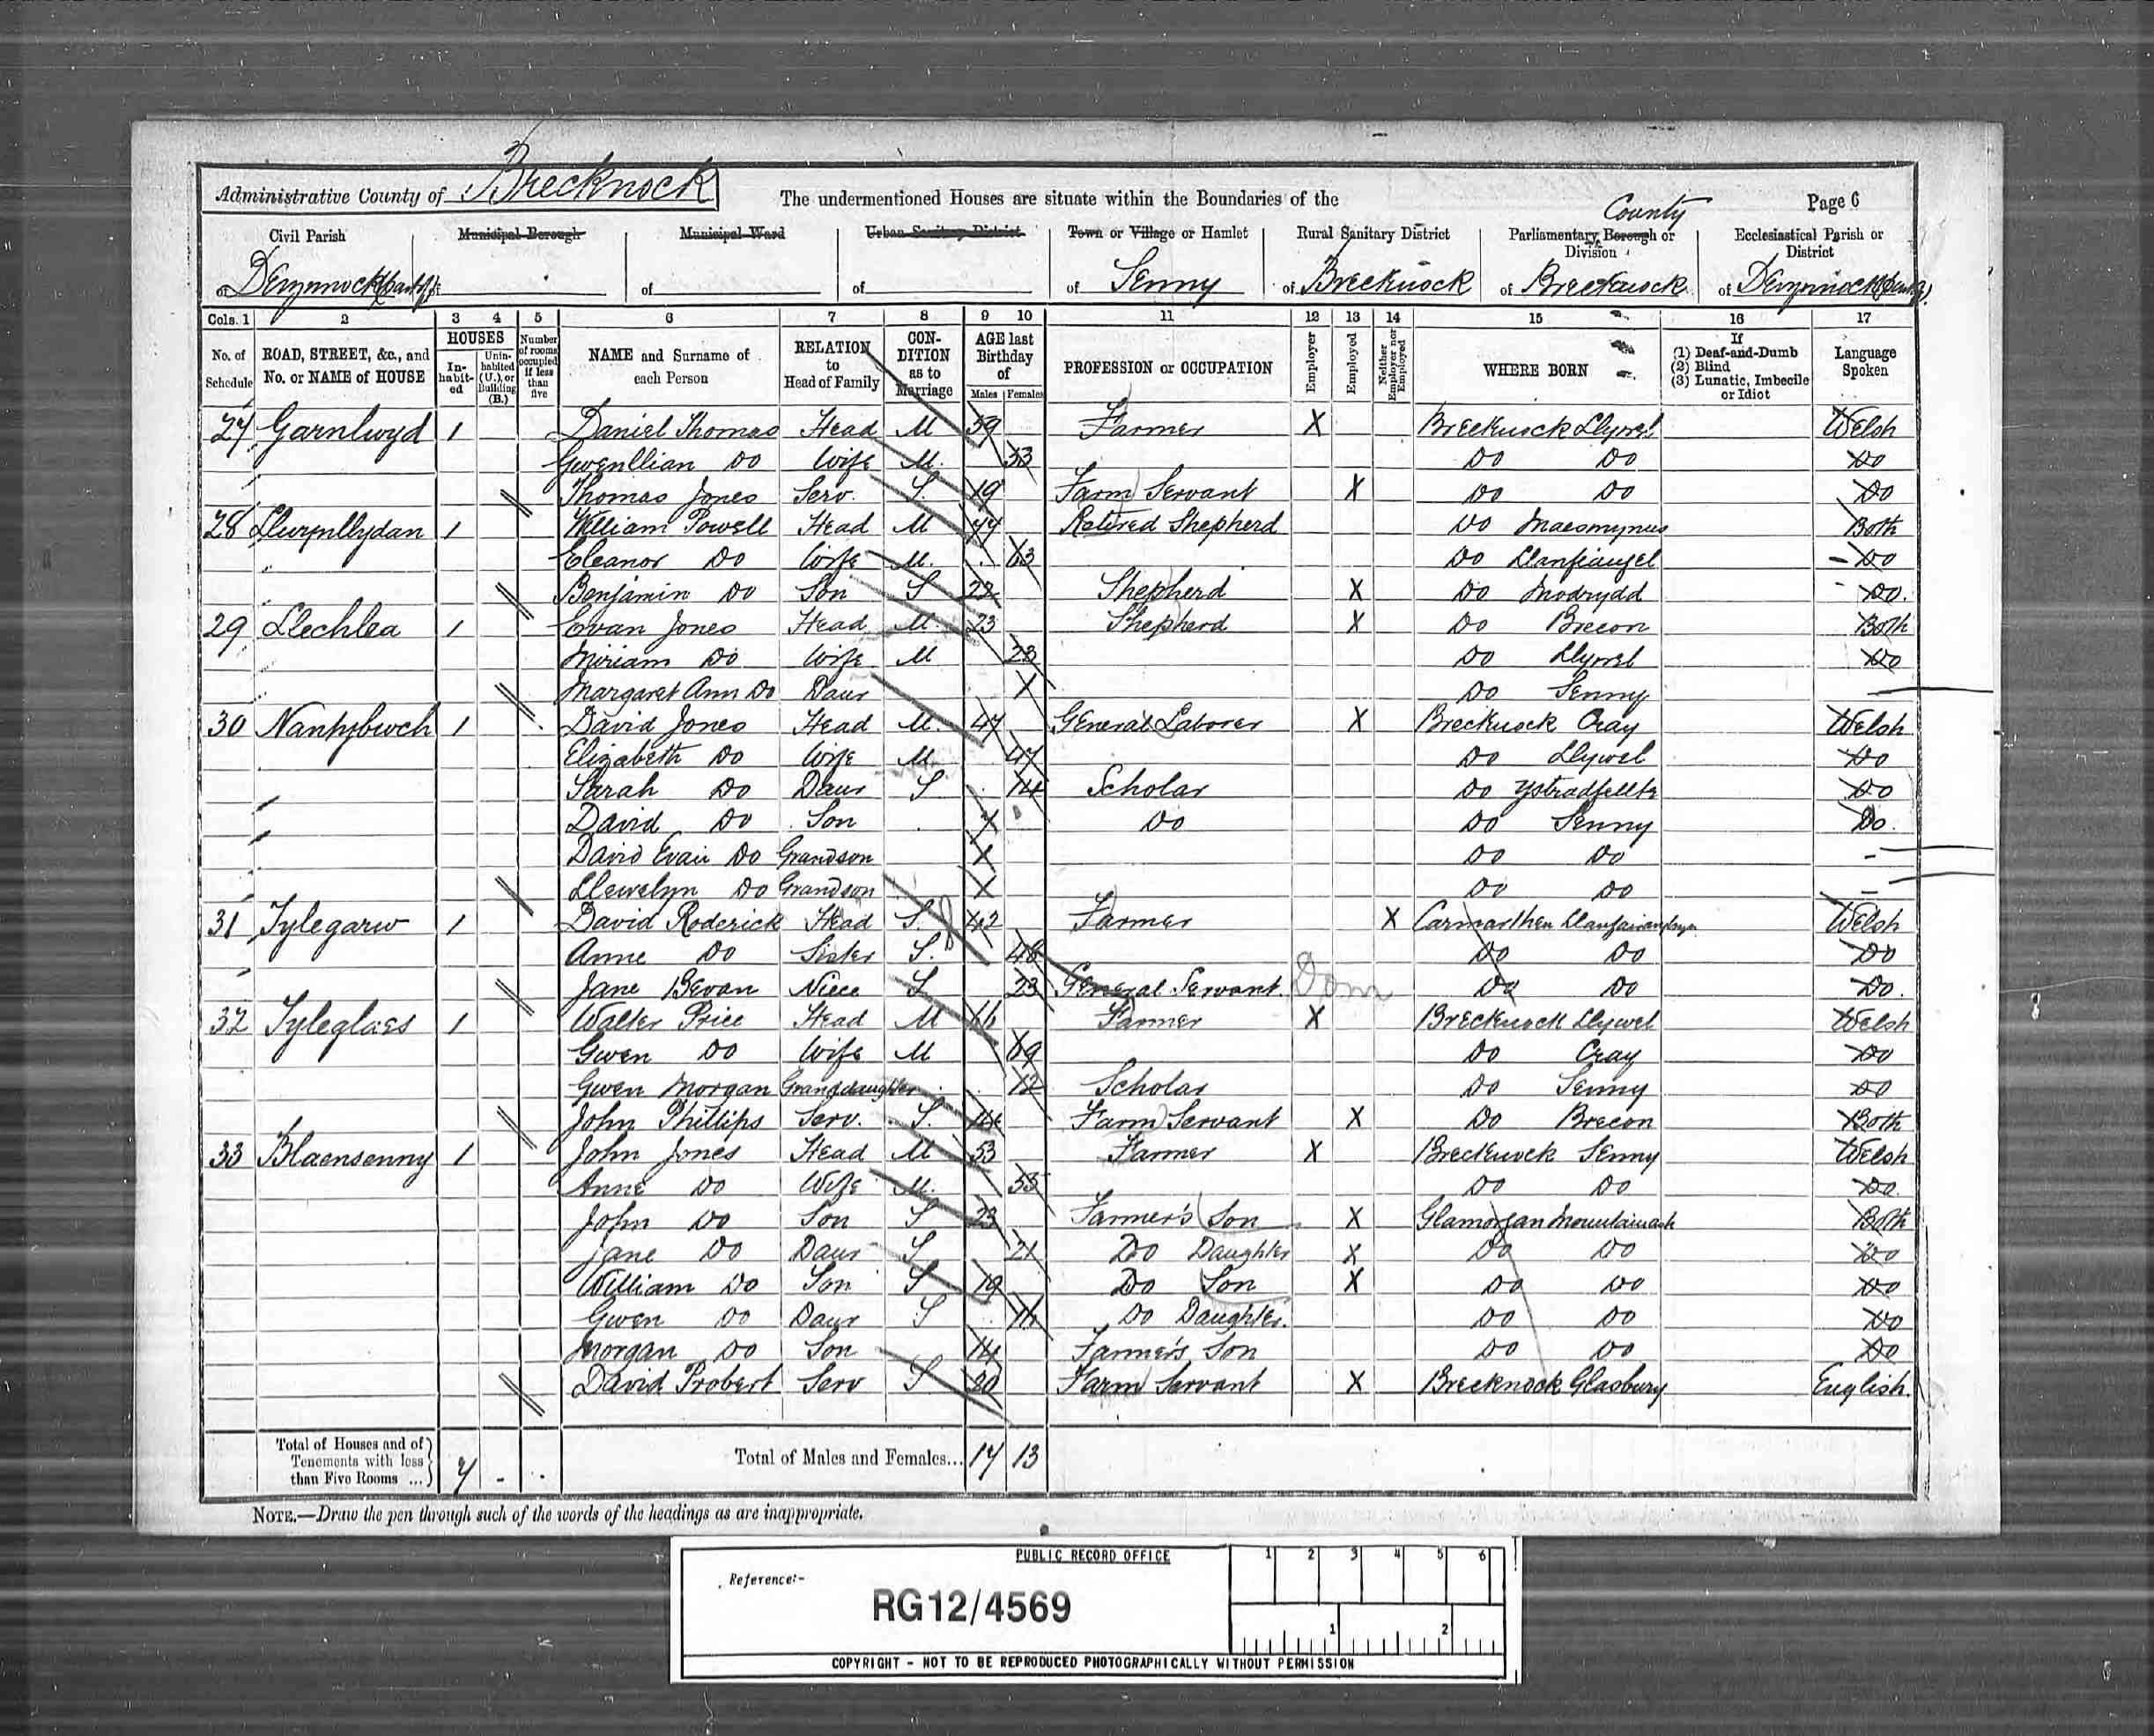 Administrative County of Brecknock The undermentioned Houses are situate within the Boundaries of the Page 6
Civil Parish Municipal Borough Municipal Ward Urban Sanitary District Town or Village or Hamlet Rural Sanitary District Parliamentary Borough or Division County Ecclesiastical Parish or District
of Devynnock (part of) of of of Senny of Brecknock of Brecknock of Devynnock
Cols. 1 2 3 4 5 6 7 8 9 10 11 12 13 14 15 16 17
No. of Schedule ROAD, STREET, &c., and No. or NAME of HOUSE HOUSES Inhabited Uninhabited (U.), or Building (B.) Number of rooms occupied if less than five NAME and Surname of each Person RELATION to Head of Family CONDITION as to Marriage AGE last Birthday of Males Females PROFESSION or OCCUPATION Employer Employed Neither Employer nor Employed WHERE BORN If (1) Deaf-and-Dumb (2) Blind (3) Lunatic, Imbecile or Idiot Language Spoken
27 Garnlwyd 1 Daniel Thomas Head M 39 Farmer X Brecknock Llywel Welsh
Gwenllian Do Wife M. 33 Do Do Do
Thomas Jones Serv. S. 19 Farm Servant X Do Do Do
28 Llwynllydan 1 William Powell Head M Retired Shepherd Do Maesmynus Both
Eleanor Do Wife M. 63 Do Llanfiangel Do
Benjamin Do Son S 22 Shepherd X Do Modrydd Do.
29 Llechlea 1 Evan Jones Head M 23 Shepherd X Do Brecon Both
Miriam Do Wife M 23 Do Llywel Do
Margaret Ann Do Daur Do Senny
30 Nantybwch 1 David Jones Head M. 47 General Laborer X Brecknock Cray Welsh
Elizabeth Do Wife M 47 Do Llywel Do
Sarah Do Daur S 14 Scholar Do Ystradfellte Do
David Do Son Do Do Senny Do.
David Evan Do Grandson Do Do -
Llewelyn Do Grandson Do Do -
31 Tylegarw 1 David Roderick Head S. 42 Farmer X Carmarthen Welsh
Anne Do Sister S. 48 Do Do Do
Jane Bevan Niece S 23 General Servant. Dom Do Do Do.
32 Tyleglaes 1 Walter Price Head M 66 Farmer X Brecknock Llywel Welsh
Gwen Do Wife M 69 Do Cray Do
Gwen Morgan Granddaughter 12 Scholar Do Senny Do
John Phillips Serv. S. 14 Farm Servant X Do Brecon Both
33 Blaensenny 1 John Jones Head M 53 Farmer X Brecknock Senny Welsh
Anne Do Wife M. Do Do Do.
John Do Son S 23 Farmer's Son X Glamorgan Mountainash Both
Jane Do Daur S 21 Do Daughter X Do Do Do
William Do Son S 19 Do Son X Do Do Do
Gwen Do Daur S Do Daughter. Do Do Do
Morgan Do Son 14 Farmer's Son Do Do Do
David Probert Serv S 20 Farm Servant X Brecknock Glasbury English.
Total of Houses and of Tenements with less than Five Rooms ... 7 - Total of Males and Females... 17 13
NOTE.—Draw the pen through such of the words of the headings as are inappropriate.
PUBLIC RECORD OFFICE 1 2 3 4 5 6
Reference:-
RG12/4569
1 2
COPYRIGHT - NOT TO BE REPRODUCED PHOTOGRAPHICALLY WITHOUT PERMISSION